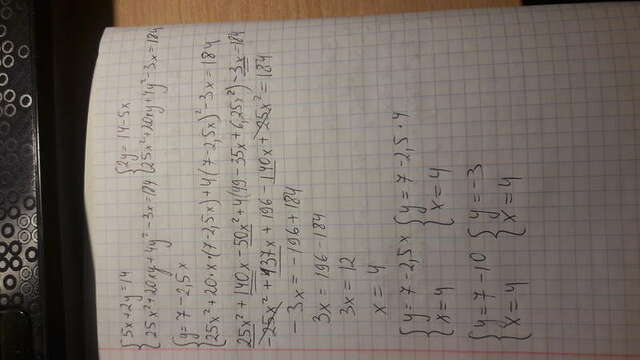 {5x+2y=14 {2y=14-5x
{25x²+20xy+4y²-3x=184 {25x²+20xy+4y²-3x=184
{y=7-2,5x
{25x²+20x·(7-2,5x)+4(7-2,5x)²-3x=184
25x²+140x-50x²+4(49-35x+6,25x²)-3x=184
-25x²+137x+196-140x+25x²=184
-3x=-196+184
3x=196-184
3x=12
x=4
{y=7-2,5x {y=7-2,5·4
{x=4 {x=4
{y=7-10 {y=-3
{x=4 {x=4